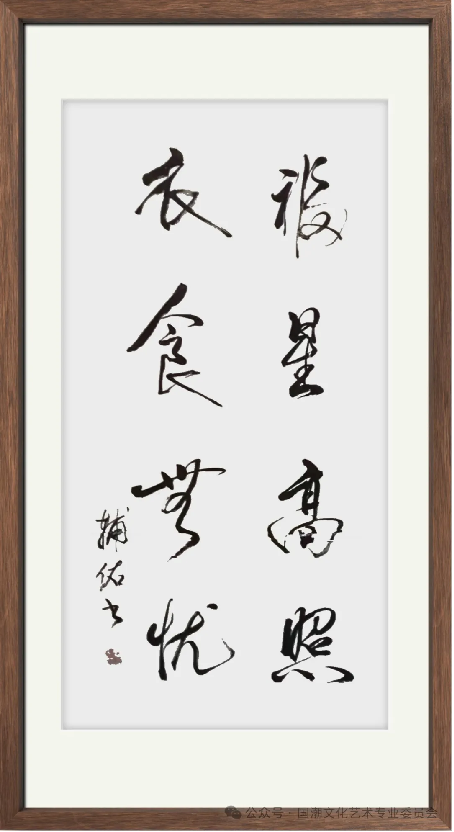 福星高照
衣食無忧
輔佑书
公众号 · 国潮文化艺术专业委员会